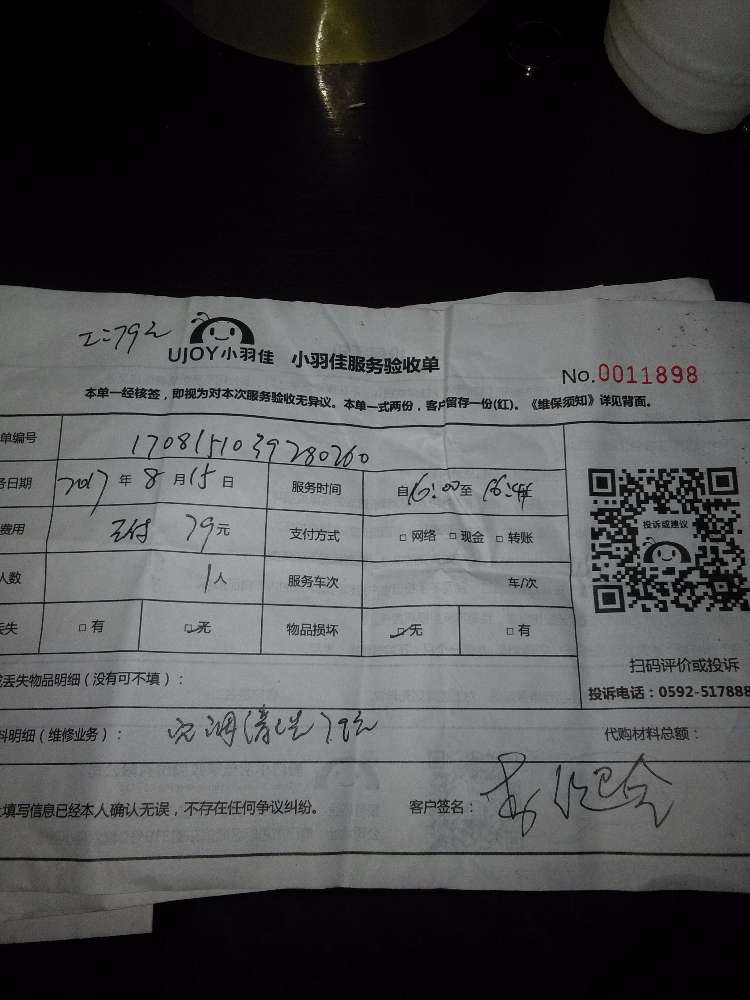 79元
UJOY小羽佳 小羽佳服务验收单
No.0011898
本单一经核签，即视为对本次服务验收无异议。本单一式两份，客户留存一份(红)。《维保须知》详见背面。
单编号 1708151039280260
务日期 2017 年 8 月 15 日 服务时间 自 16:00 至
费用 79 元 支付方式 □ 网络 □ 现金 □ 转账
人数 1 人 服务车次 车/次
丢失 □ 有 □ 无 物品损坏 □ 无 □ 有
投诉或建议
扫码评价或投诉
投诉电话：0592-517888
丢失物品明细（没有可不填）：
料明细（维修业务）： 空调清洗79元 代购材料总额：
填写信息已经本人确认无误，不存在任何争议纠纷。 客户签名：